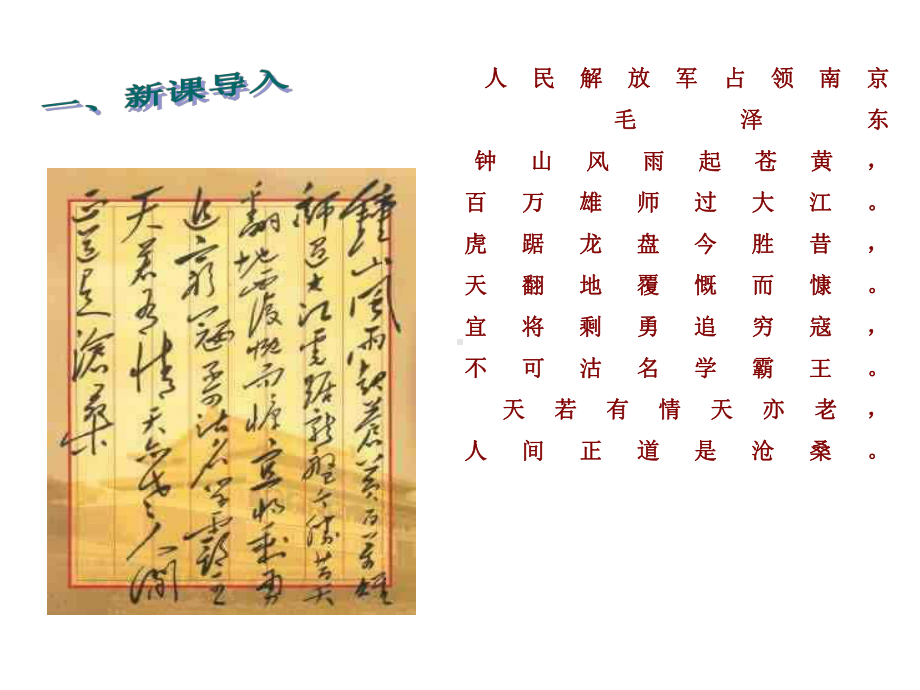 一、新课导入
人民解放军占领南京
毛泽东
钟山风雨起苍黄，
百万雄师过大江。
虎踞龙盘今胜昔，
天翻地覆慨而慷。
宜将剩勇追穷寇，
不可沽名学霸王。
天若有情天亦老，
人间正道是沧桑。
鐘山風雨起蒼黃百万雄
師過大江虎踞龍盤今勝昔天
翻地覆慨而慷宜將剩勇
追窮寇不可沽名學霸王
天若有情天亦老人間
正道是滄桑